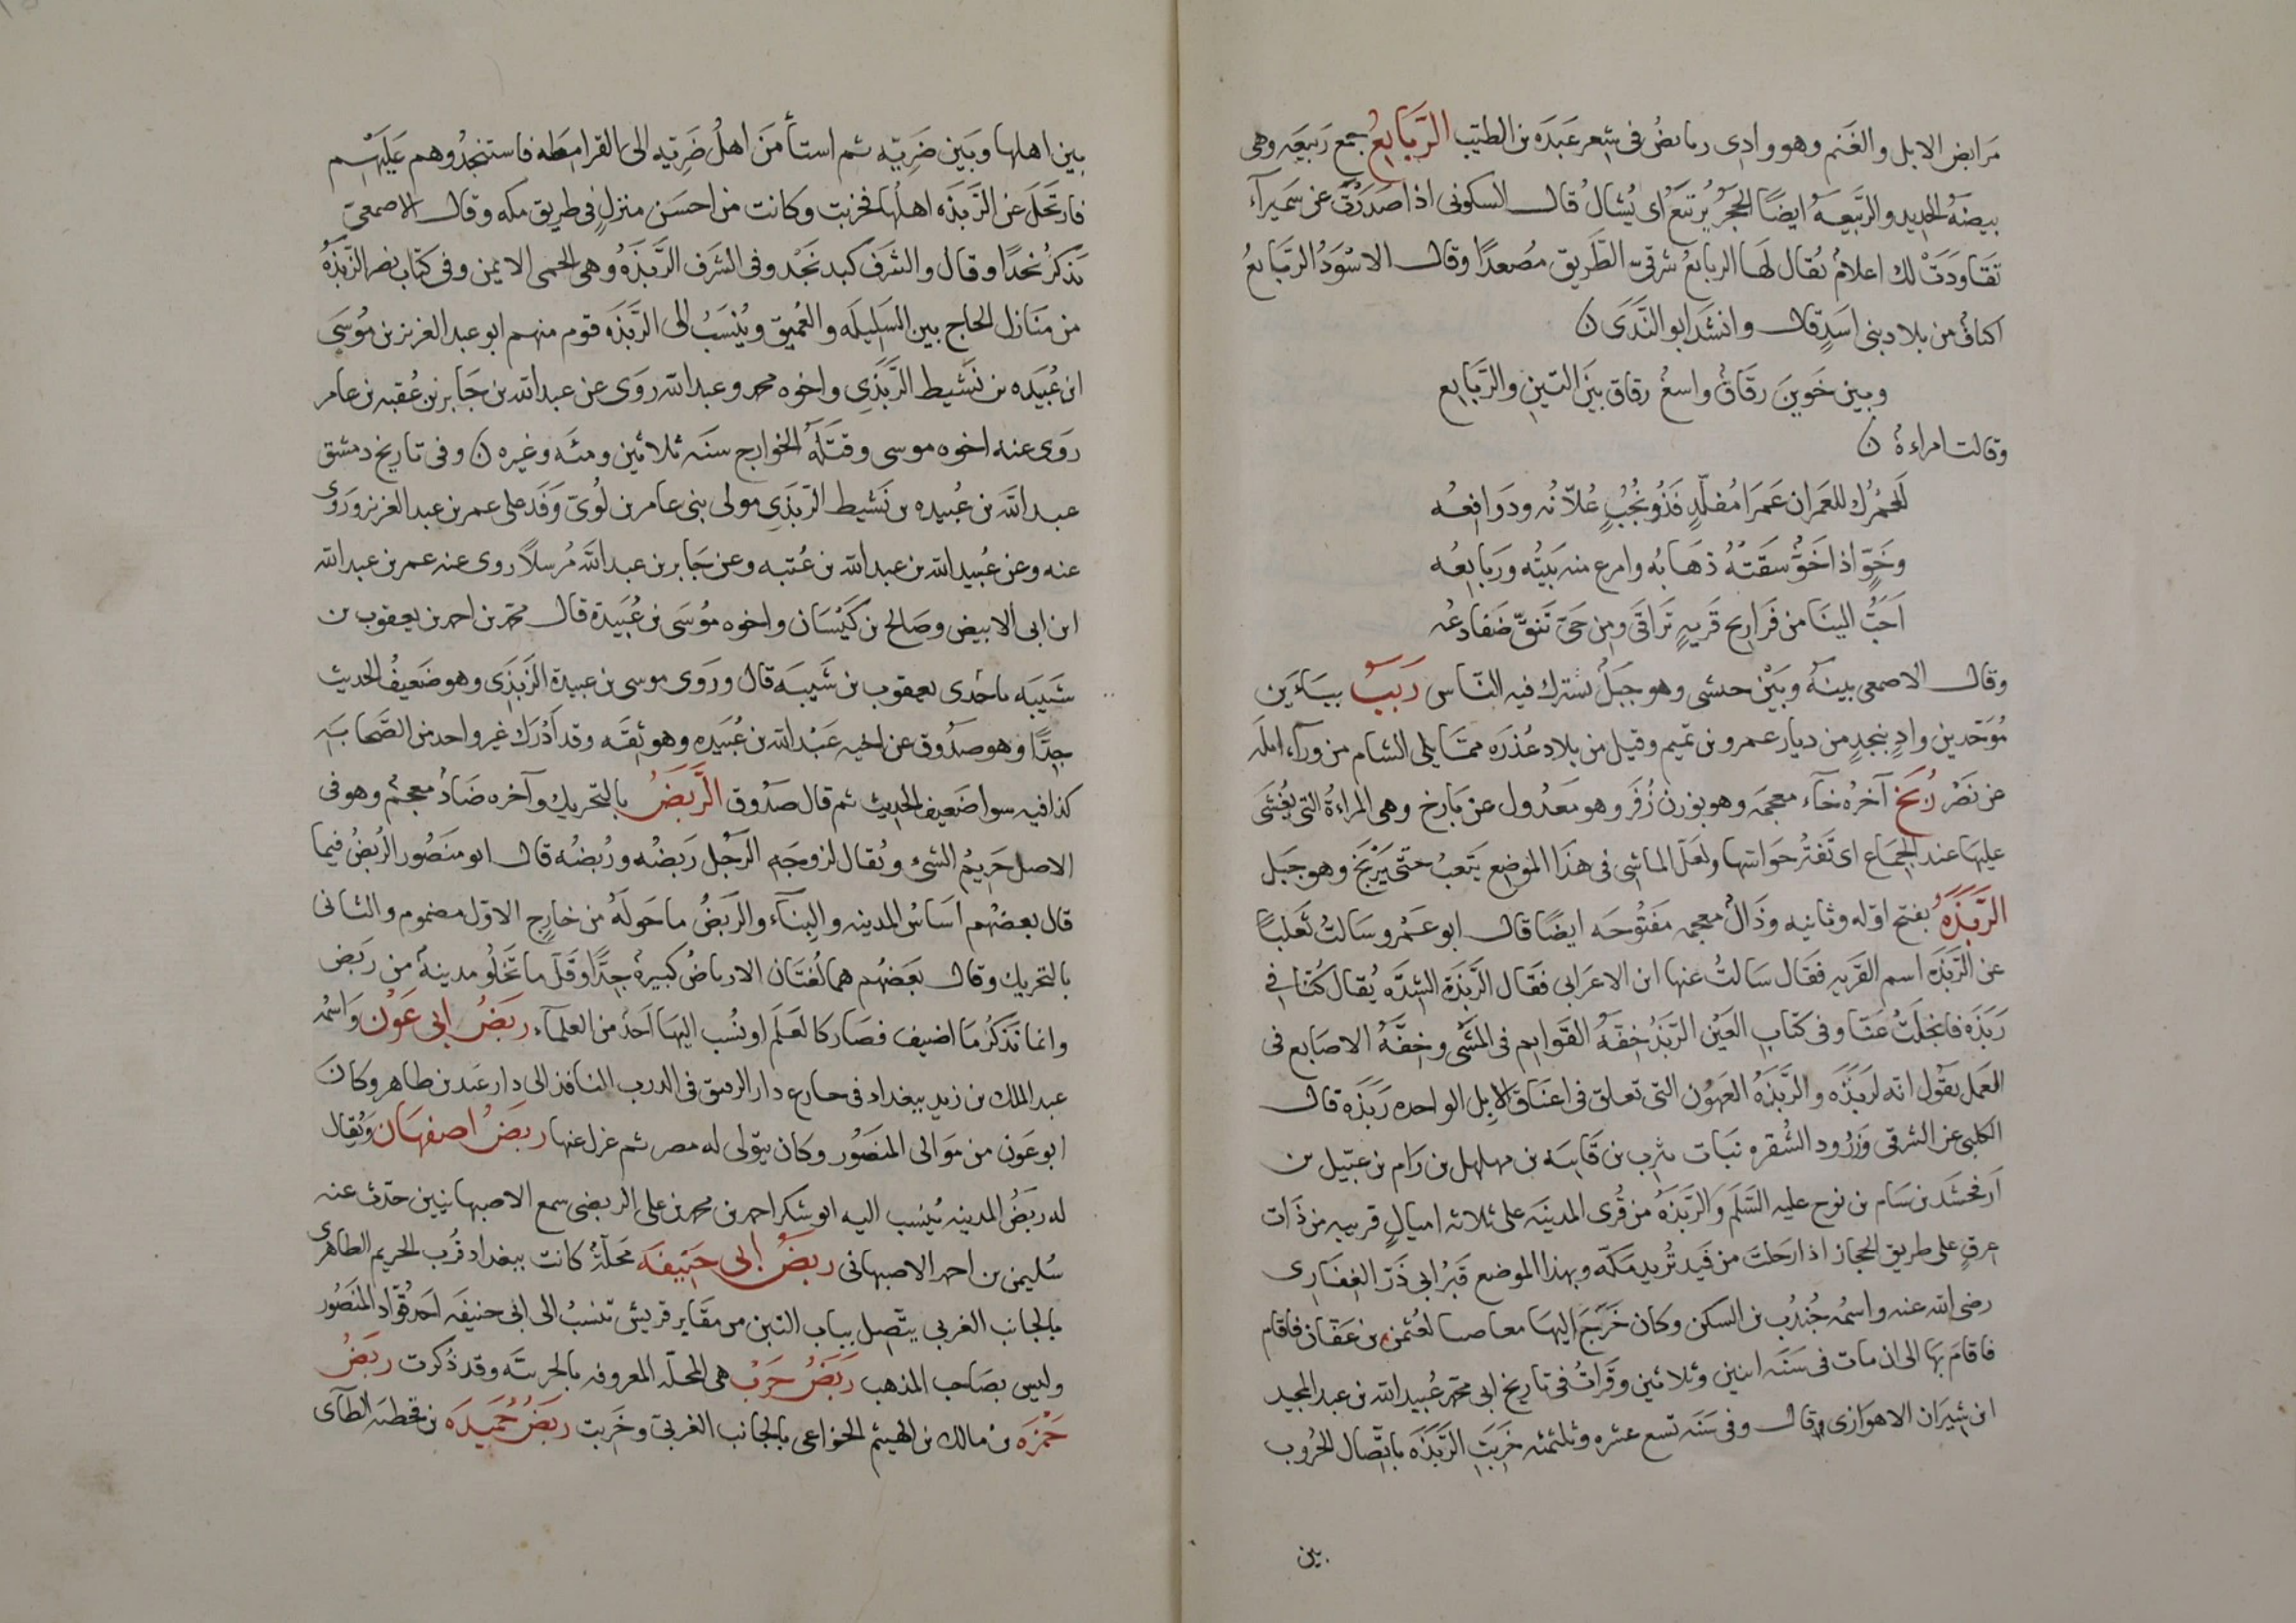 مَرابض الابل والغَنم وهو وادى ربابضُ فى شِعر عَبَدَه بن الطيّب الرَّبَايِعُ جمع رَبيعَه وهى
بيضَهُ الحديد والرَّبيعَهُ ايضًا الحَجَرُ يُرتبَعُ اى يُشالُ قال السكونى اذا صَدَرْتَ عن سَمَيرآء
تَقَاوَدَتْ لك اعلامٌ يُقال لَها الربايعُ شرقىّ الطَّريق مُصعدًا وقال الاسْوَدُ الرَّبَايعُ
اكنافٌ من بلاد بنى اسَدٍ قال وانشَد ابو النَّدَى ن
وبين خَوينَ رقَاقٌ واسعُ رقاق بَيَن التينِ والرَّبايِع
وقالت امراءةٌ ن
لَعَمْرُك للعمران عَمرَا مُقلّدٍ فَذُو نُجُبٍ عُلّانُه ودَوافِعُه
وخَوٍّ اذا خَوٌّ سَقَتْهُ ذهَابُه وامرع منه بَيتُه ورَبايعُه
اَحَبُّ الينَا من فَراريح قَريهٍ تَزاقَى ومن حَىّ تَنقّ ضَفادعُه
وقال الاصمعى بينَهُ وبَيْن حبشى وهو جبَلٌ نشترك فيه النّاس رَبيَبٌ بيَاءَين
مُوَحّدين وادٍ بنجدٍ من ديار عمرو بن تميم وقيل من بلاد عُذرَه ممّا يلى الشام من ورآء ايله
عن نَصْر رُبَخ آخرُه خآء معجمَه وهو بوزن زُفَر وهو مَعْدُول عن رَابخ وهى المراءةُ التى يُغشَى
عليهَا عند الجِمَاع اى تَفتُر حَواسّها ولَعَلّ الماشى فى هذَا الموضع يَتعبُ حتّى يَرْبَخ وهو جَبَل
الرَّبَذَهُ بفتح اوّله وثانيه وذَالٌ معجمه مَفتُوحَه ايضًا قال ابو عَمْرو سَالتُ ثَعلبًا
عن الرَّبَذَه اسم القَريه فقَال سَالتُ عنها ابن الاعرَابى فقَال الرَّبَذَة الشدَّه يُقال كُنّا فى
رَبَذَه فانجَلَتْ عنّا وفى كتاب العَيْن الرَّبَذُ خِفّهُ القَوايم فى المَشْى وخِفّهُ الاصَابع فى
العَمل يقُول انّه لرَبِذَه والرَّبَذَهُ العهُوْن التى تعلق فى اعنَاق الابِل الواحده رَبَذَه قال
الكلبى عن الشرقى وزَرُود الشُّقره نبَات يثرب بن قَانيَه بن مهلهل بن رَام بن عبَيل بن
اَرفخشَد بن سَام بن نوح عليه السَّلَم والرَّبَذَهُ من قُرى المدينَه على ثلاثه اميالٍ قريبه من ذَات
عرقٍ على طريق الحجاز اذا رَحلتَ من فَيد تُريد مَكّه وبهذا الموضع قَبْرُ ابى ذَرّ الغفَارى
رضى الله عنه واسمُه جُنْدُب بن السكن وكان خَرَجَ اليهَا معاصبا لعُثمن بن عَفّان فاقام
فاقامَ بهَا الى ان مات فى سَنَه اثنين وثلاثين وقَرَاتُ فى تاريخ ابى محمّد عُبيد الله بن عبد المجيد
ابن شِيرَان الاهوَازى قال وفى سَنَه تسع عشره وثلثمئه خَربَتِ الرَّبَذَه باتّصال الحُروب
بين
بين اهلها وبَين ضَرِيّه ثم استأمَنَ اهلُ ضَرِيّه الى القرامِطَه فاستنجدُوهم عَلَيهْم
فارتَحَلَ عن الرَّبَذَه اهلُهَا فخربت وكانت من احسَن منزلٍ فى طريق مكه وقال الاصمعىّ
يَذكرُ نجدًا وقال والشرَف كبد نَجْد وفى الشرَف الرَّبَذَهُ وهى الحمى الايمن وفى كتاب نصر الرَّبَذَهُ
من مَنَازل الحاج بين السَليلَه والعُميق ويُنْسَبُ الى الرَّبَذَه قوم منهم ابو عبد العزيز بن مُوسَى
ابن عُبَيَده بن نَشيط الرَّبَذِى واخوه محمد وعبد الله روَى عن عبد الله بن جَابر بن عُقبه بن عامر
روَى عنه اخوه موسى وقتَلَهُ الخوارج سنَه ثلاثين ومئه وغيره ن وفى تاريخ دمشق
عبد الله بن عُبيده بن نَشيط الرّبَذِى مولى بنى عامر بن لُوىّ وَفَد على عمر بن عبد العزيز ورَوَى
عنه وعن عُبيد الله بن عبد الله بن عُتبه وعن جَابر بن عبد الله مُرسلاً روى عنه عمر بن عبد الله
ابن ابى الابيض وصَالح بن كَيْسَان واخوه مُوسَى بن عُبَيَدة قال محمّد بن احمد بن يعقوب بن
شَيَبَه ما جَدى يعقوب بن شَيبَه قال ورَوى موسى بن عبيدة الرَّبَذَى وهو ضَعيفُ الحديث
جدًّا وهو صدُوق عن اخيه عَبْد الله بن عُبَيده وهو ثِقَه وقد اَدْرَك غير واحد من الصَّحابَه
كذا فيه سوا ضَعيف الحديث ثم قال صَدُوق الرَّبَضُ بالتحريك وآخره ضَادٌ معجمٌ وهو فى
الاصل حَريمُ الشئ ويُقال لزوجَه الرَّجُل رَبَضُه ورُبضُه قال ابو منصُور الرُبضُ فيما
قال بعضُهم اَسَاسُ المدينه والبِنآء والرَبَضُ ما حَولَهُ من خارِج الاوّل مضموم والثانى
بالتحريك وقال بَعَضهُم هما لُغتَان الارباضُ كبيرهٌ جدًّا وقَلّ ما تَخلُو مدينهٌ من رَبَض
وانما نَذكُرُ مَا اضيف فصَار كالعَلَم او نُسب اليهَا اَحَدٌ من العلمآء رَبَضُ ابى عَوْن وَاسمُه
عبد الملك بن زيد ببغداد فى شارع دار الرقيق فى الدرب النافذ الى دار عبد بن طاهر وكانَ
ابو عَون من مَوالى المنصُور وكان يتولى له مصر ثم عزل عنها رَبَضُ اصفَهَان ويُقال
له رَبَضُ المدينه يُنسب اليه ابو شكر احمد بن محمد بن على الربضى سمع الاصبهانيين حدّث عنه
سُليمن بن احمد الاصبهانى رَبَضُ ابى حَنيفَه مَحَلّهٌ كانت ببغداد قُرب الحريم الطاهرى
بالجانب الغربى يتّصل بباب التبن من مقَابر قريش تنسبُ الى ابى حنيفه احَد قُوّاد المنصُور
وليس بصَاحب المذهب رَبَضُ حَرْب هى المحلّه المعروفه بالحربيَّه وقد ذكرت رَبَضُ
حَمْزَه بن مالك بن الهيثم الخزاعى بالجانب الغربىّ وخَربت رَبَضُ حُمَيدَه بن قحطبه الطآى